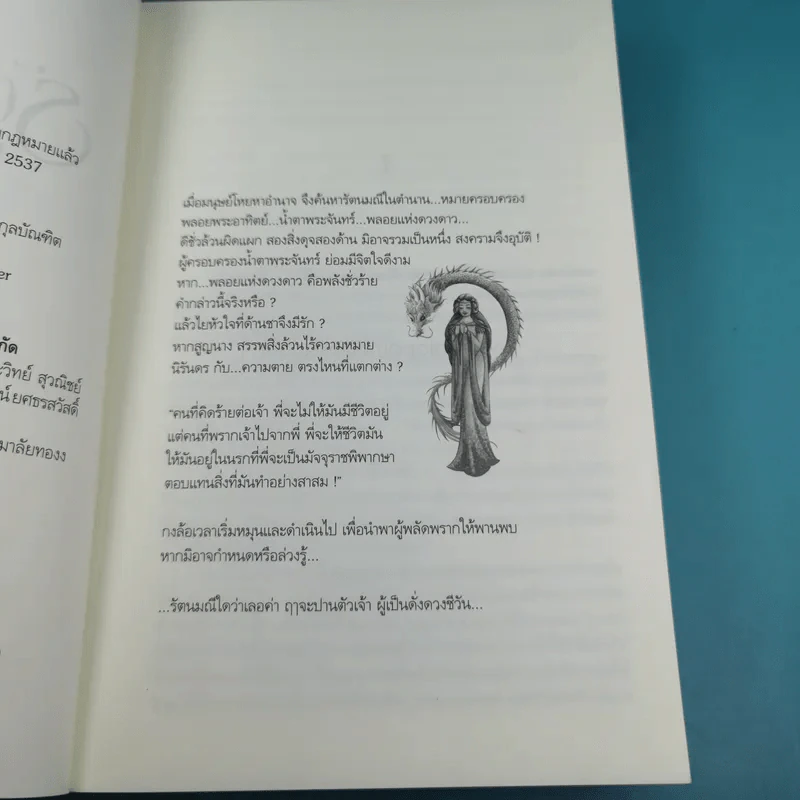 กฎหมายแล้ว
2537
กุลบัณฑิต
er
กัด
วิทย์ สุวณิชย์
น์ ยศธรสวัสดิ์
มาลัยทองง
เมื่อมนุษย์โหยหาอำนาจ จึงค้นหารัตนมณีในตำนาน...หมายครอบครอง
พลอยพระอาทิตย์...น้ำตาพระจันทร์...พลอยแห่งดวงดาว...
ดีชั่วล้วนผิดแผก สองสิ่งดุจสองด้าน มิอาจรวมเป็นหนึ่ง สงครามจึงอุบัติ !
ผู้ครอบครองน้ำตาพระจันทร์ ย่อมมีจิตใจดีงาม
หาก...พลอยแห่งดวงดาว คือพลังชั่วร้าย
คำกล่าวนี้จริงหรือ ?
แล้วไยหัวใจที่ด้านชาจึงมีรัก ?
หากสูญนาง สรรพสิ่งล้วนไร้ความหมาย
นิรันดร กับ...ความตาย ตรงไหนที่แตกต่าง ?
“คนที่คิดร้ายต่อเจ้า พี่จะไม่ให้มันมีชีวิตอยู่
แต่คนที่พรากเจ้าไปจากพี่ พี่จะให้ชีวิตมัน
ให้มันอยู่ในนรกที่พี่จะเป็นมัจจุราชพิพากษา
ตอบแทนสิ่งที่มันทำอย่างสาสม !”
กงล้อเวลาเริ่มหมุนและดำเนินไป เพื่อนำพาผู้พลัดพรากให้พานพบ
หากมิอาจกำหนดหรือล่วงรู้...
...รัตนมณีใดว่าเลอค่า ฤๅจะปานตัวเจ้า ผู้เป็นดั่งดวงชีวัน...